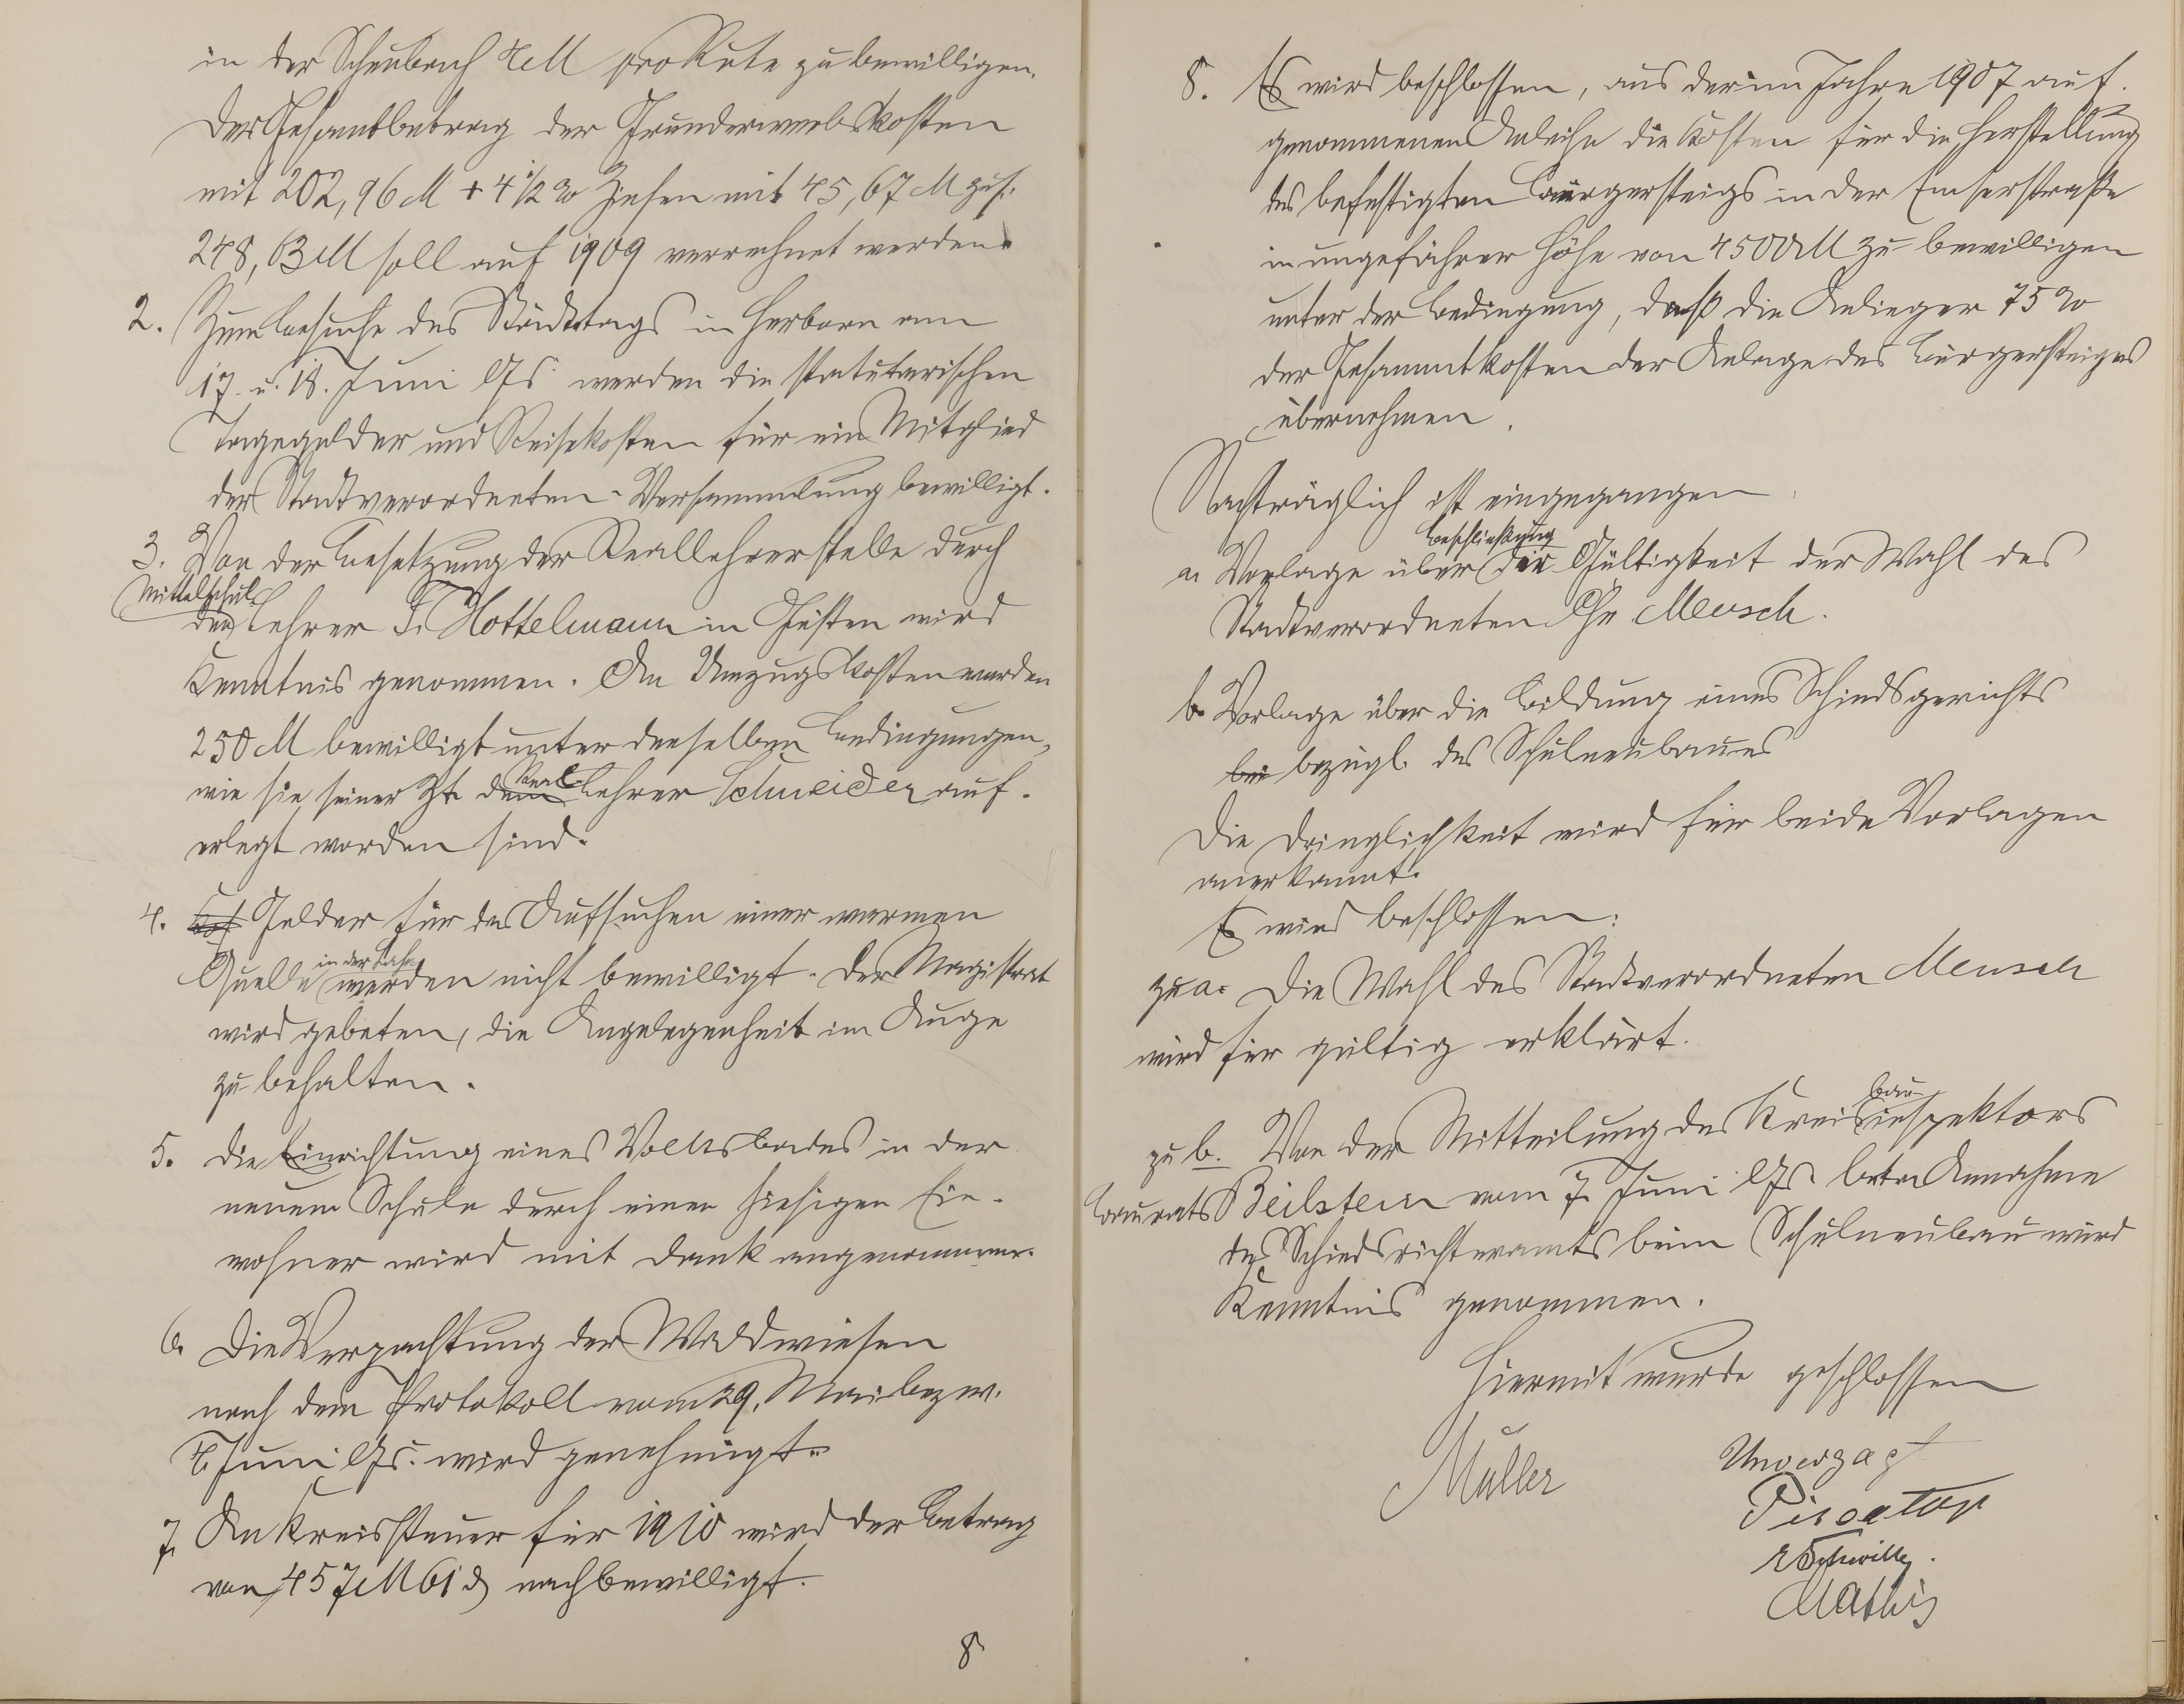 in der Scheubach 4 M pro Rute zu bewilligen.
Der Gesamtbetrag der Grunderwerbskosten
mit 202,96 M + 4 1/2 % Zinsen mit 45,67 M zus.
248,63 M soll auf 1909 verrechnet werden.
2. Zum Besuche des Städtetags in Herborn am
17. u. 18. Juni lJs. werden die statutarischen
Tagegelder und Reisekosten für ein Mitglied
der Stadtverordneten-Versammlung bewilligt.
3. Von der Besetzung der Reallehrerstelle durch
Mittelschul
den Lehrer F. Hottelmann in Geisten wird
Kenntnis genommen. An Umzugskosten werden
250 M bewilligt unter denselben Bedingungen,
wie sie seiner Zt. dem Real Lehrer Schneider auf-
erlegt worden sind.
4. Gelder für das Aufsuchen einer warmen
Quelle in der Lahn werden nicht bewilligt. Der Magistrat
wird gebeten, die Angelegenheit im Auge
zu behalten.
5. Die Einrichtung eines Volksbades in der
neuen Schule durch einen hiesigen Ein-
wohner wird mit Dank angenommen.
6. Die Verpachtung der Waldwiesen
nach dem Protokoll vom 29. Mai bezw.
4. Juni lJs. wird genehmigt.
7. An Kreissteuer für 1910 wird der Betrag
von 457 M 61 ₰ nachbewilligt.
8
8. Es wird beschlossen, aus der im Jahre 1907 auf-
genommenen Anleihe die Kosten für die Herstellung
des befestigten Bürgersteigs in der Emserstraße
in ungefährer Höhe von 4500 M zu bewilligen
unter der Bedingung, daß die Anlieger 75 %
der Gesammtkosten der Anlage des Bürgersteiges
übernehmen.
Nachträglich ist eingegangen
Beschließung
a. Vorlage über die Gültigkeit der Wahl des
Stadtverordneten Chr. Meusch.
b. Vorlage über die Bildung eines Schiedsgerichts
bei bezügl. des Schulneubaues
Die Dringlichkeit wird für beide Vorlagen
anerkannt.
Es wird beschlossen:
zu a. Die Wahl des Stadtverordneten Meusch
wird für gültig erklärt.
zu b. Von der Mitteilung des Kreisbauinspektors
Baurats Beilstein vom 7. Juni lJs. betr. Annahme
des Schiedsrichteramts beim Schulneubau wird
Kenntnis genommen.
Hiermit wurde geschlossen
Müller
Unverzagt
Piscator
Mathis